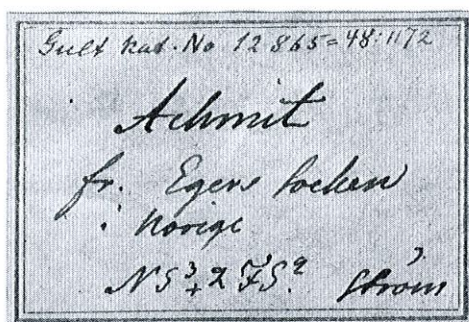 Gult Kat. No 12865=48:1172
Achmit
fr. Egers Socken
i Norige
NS³+2FS²
Ström